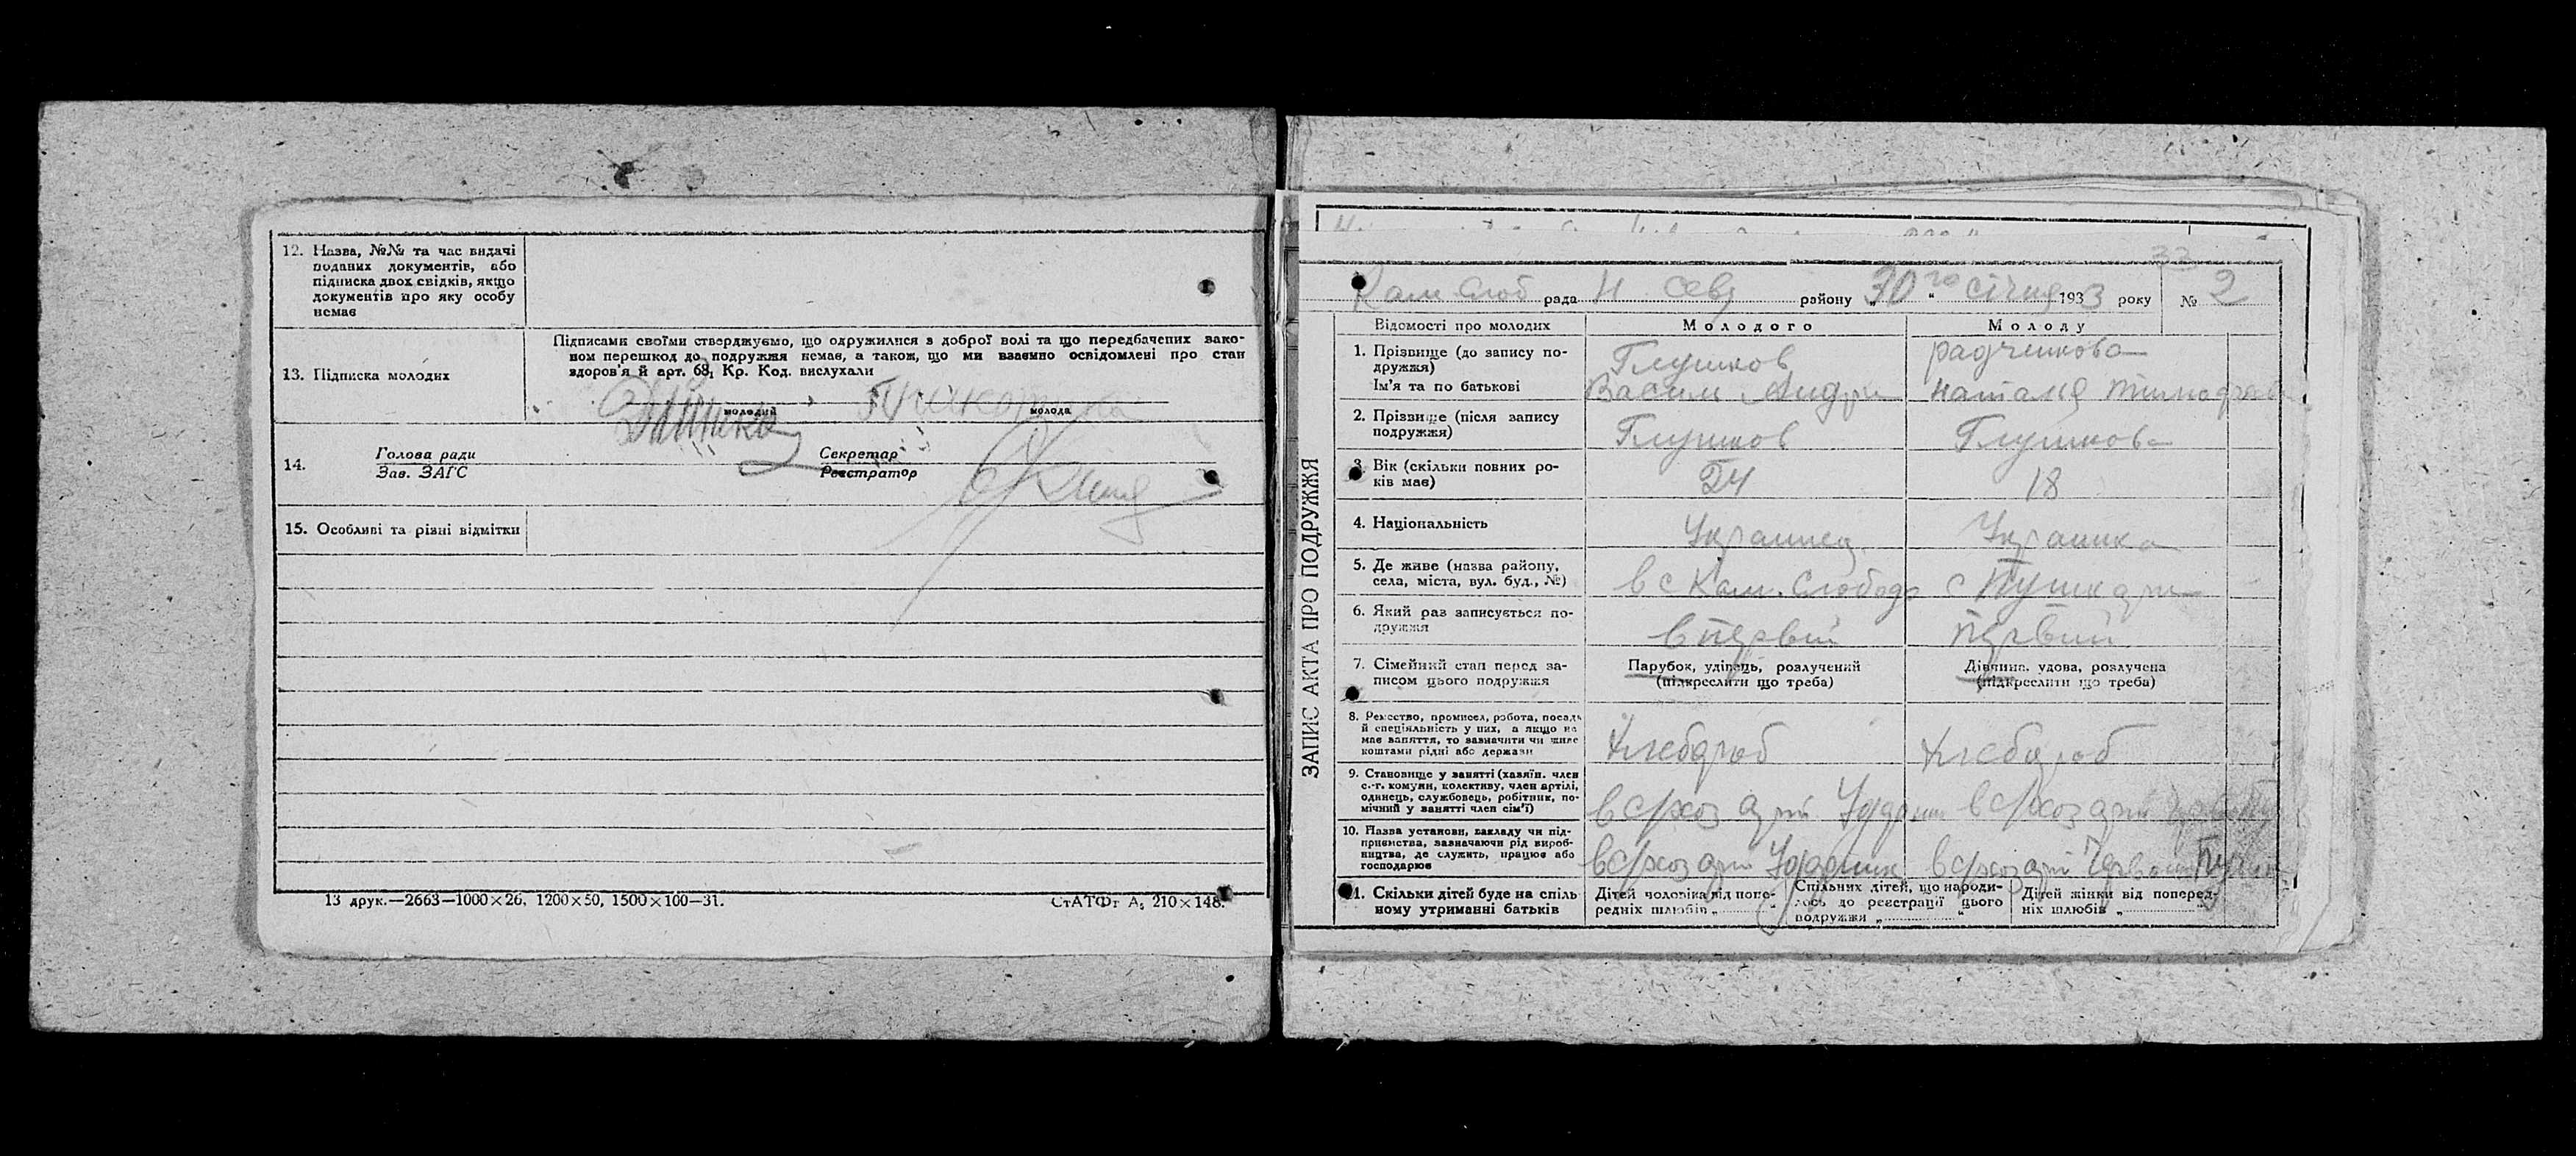 12. Назва, №№ та час видачі
поданих документів, або
підписка двох свідків, якщо
документів про яку особу
немає
13. Підписка молодих
Підписами своїми стверджуємо, що одружилися з доброї волі та що передбачених зако-
ном перешкод до подружжя немає, а також, що ми взаємно освідомлені про стан
здоров'я й арт. 68, Кр. Код. вислухали
молодий молода
14. Голова ради
Зав. ЗАГС
Секретар
Реєстратор
15. Особливі та різні відмітки
13 друк.—2663—1000×26, 1200×50, 1500×100—31.
СтАТФт А₅ 210×148.
ЗАПИС АКТА ПРО ПОДРУЖЖЯ
33
Кам Слоб рада Н Сев району „30го“ січня 1933 року № 2
Відомості про молодих Молодого Молоду
1. Прізвище (до запису по-
дружжя)
Глушков радченкова
Ім'я та по батькові
Васили Андри Наталя
2. Прізвище (після запису
подружжя)
Глушков Глушкова
3. Вік (скільки повних ро-
ків має)
24 18
4. Національність
Украинец Украинка
5. Де живе (назва району,
села, міста, вул. буд., №)
в с Кам. Слобода с Пушкари
6. Який раз записується по-
дружжя
в первий первий
7. Сімейний стан перед за-
писом цього подружжя
Парубок, удівець, розлучений
(підкреслити що треба)
Дівчина, удова, розлучена
(підкреслити що треба)
8. Ремество, промисел, робота, посада
й спеціяльність у них, а якщо не
має заняття, то зазначити чи живе
коштами рідні або держави
Хлебороб Хлебороб
9. Становище у занятті (хазяїн. член
с.-г. комуни, колективу, член артілі,
одинець, службовець, робітник, по-
мічний у занятті член сім'ї)
в с/хоз арти в с/хоз арти
10. Назва установи, закладу чи під-
приємства, зазначаючи рід вироб-
ництва, де служить, працює або
господарює
в с/хоз арти Ударник в с/хоз арти
11. Скільки дітей буде на спіль
ному утриманні батьків
Дітей чоловіка від попе-
редніх шлюбів „ “
Спільних дітей, що народи-
лось до реєстрації цього
подружжя „ “
Дітей жінки від поперед-
ніх шлюбів „ “